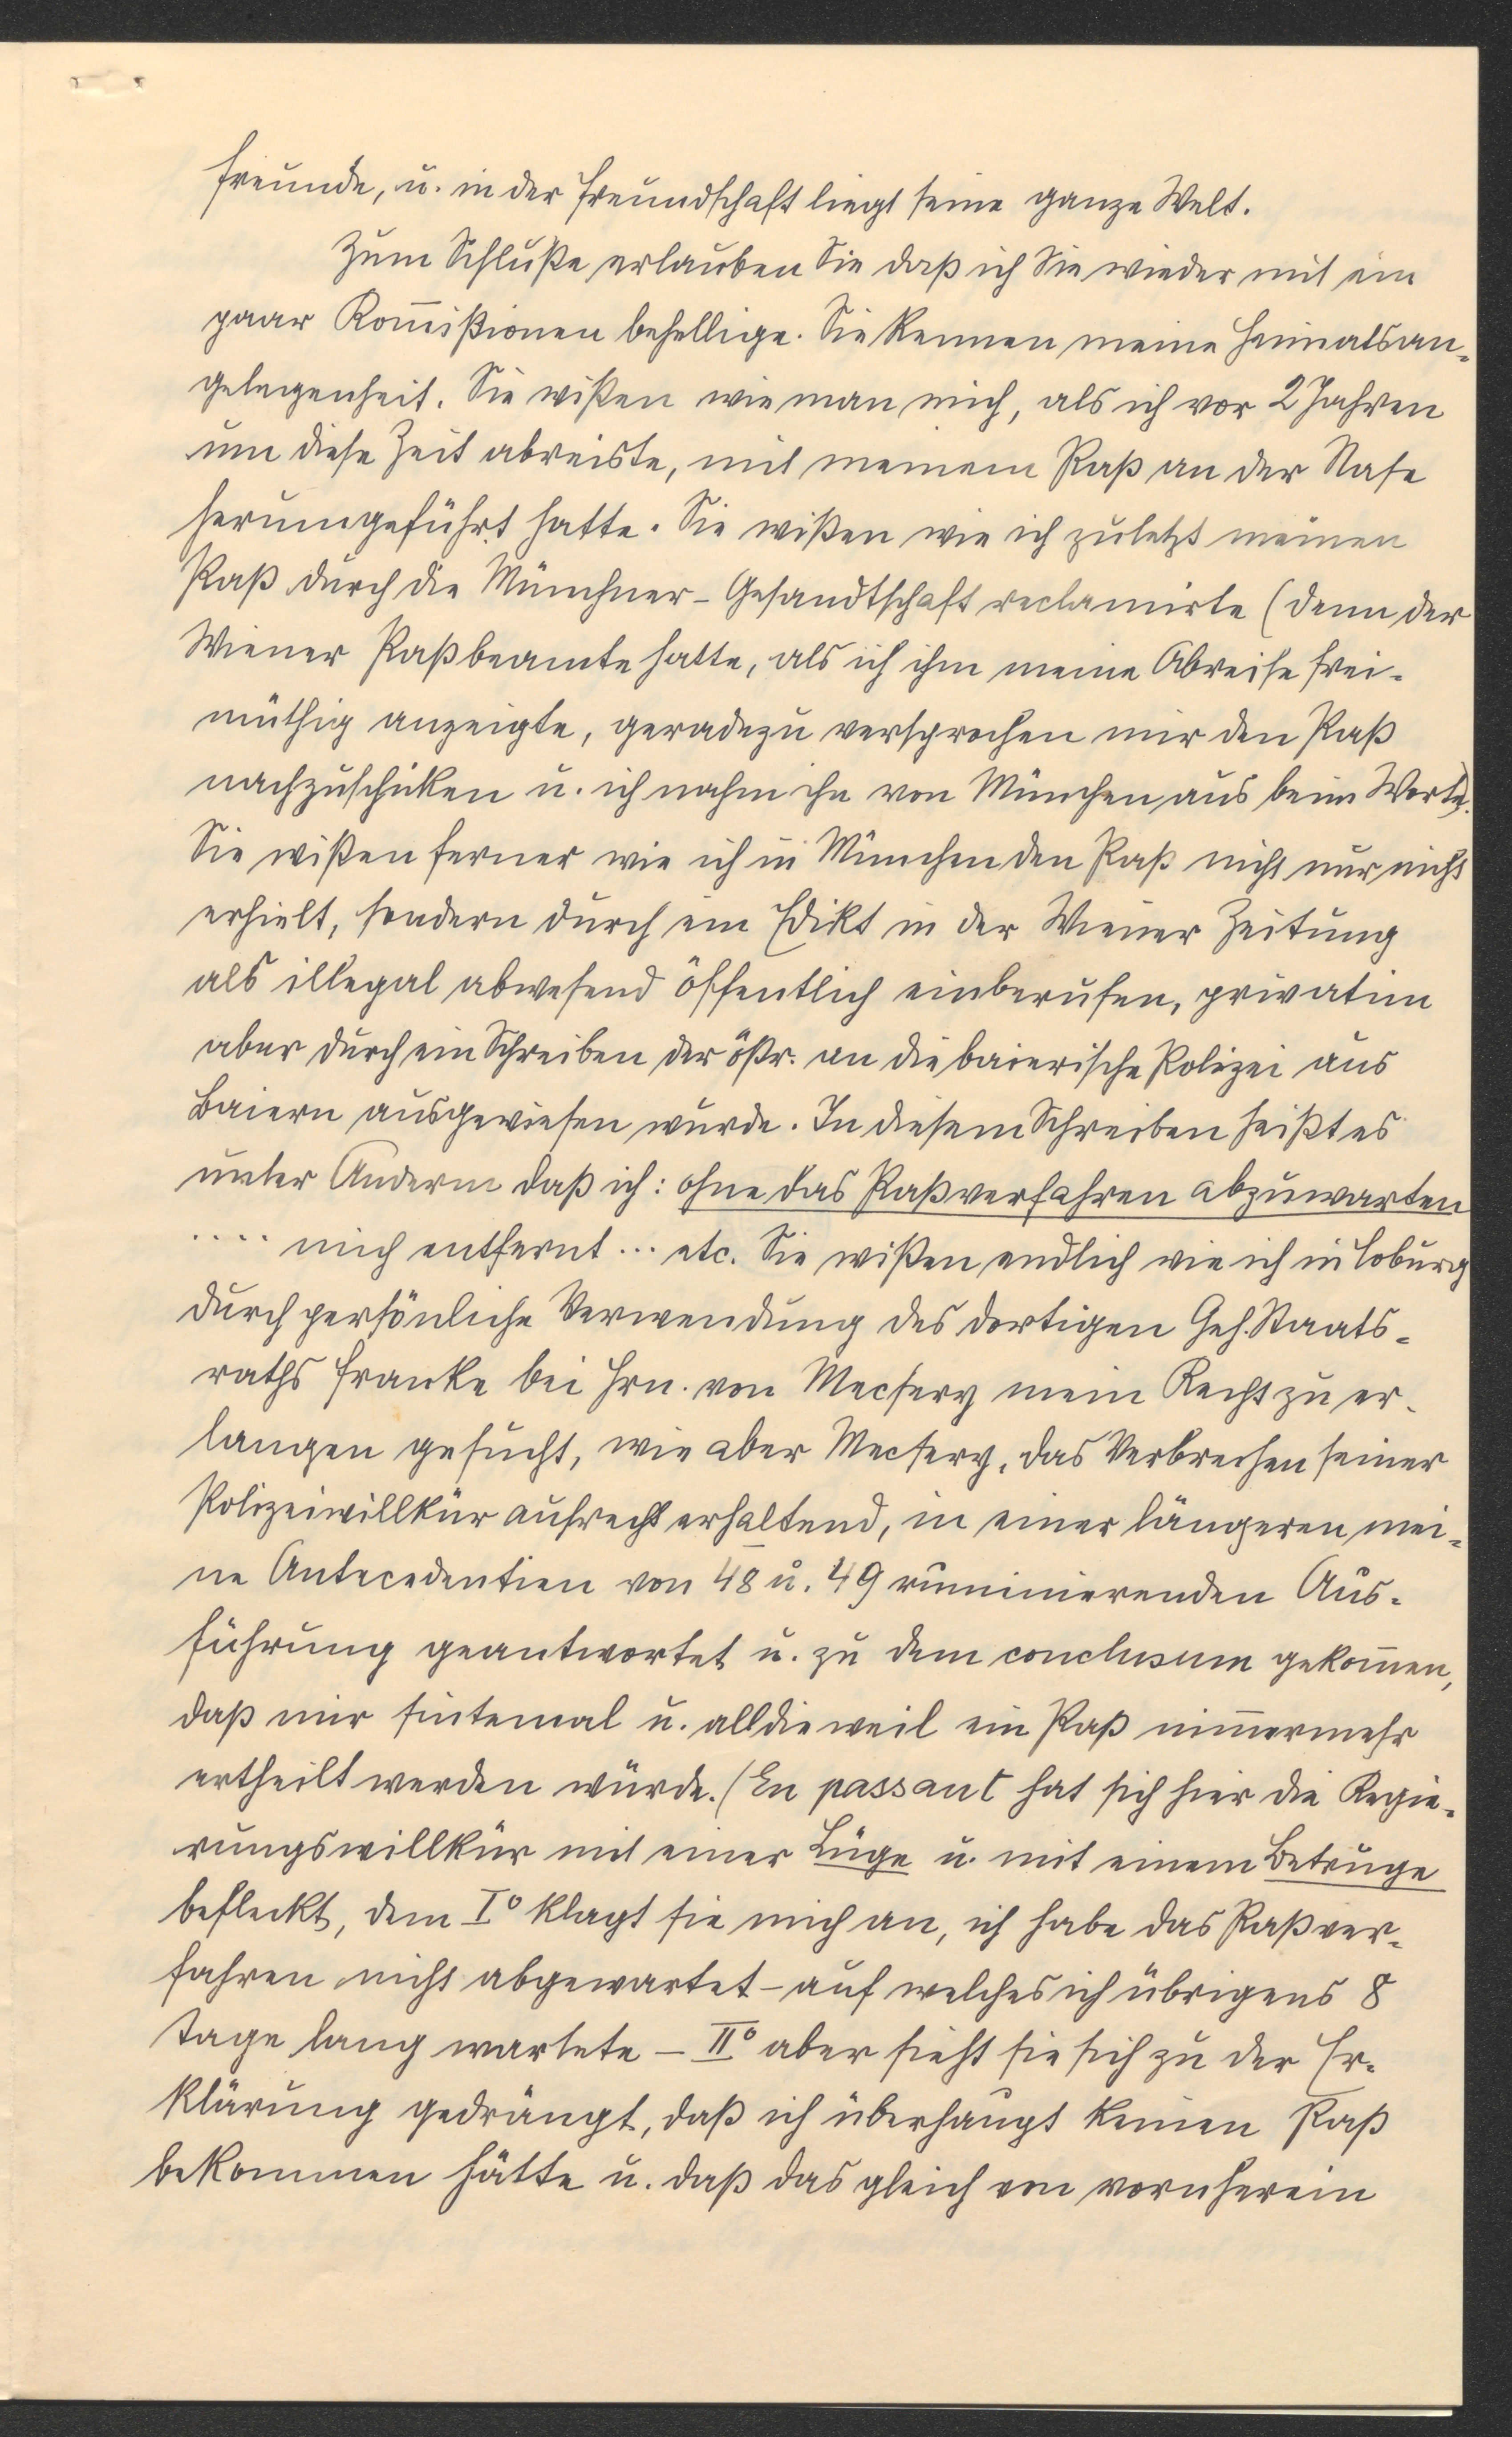 Freunde, u. in der Freundschaft liegt seine ganze Welt.
Zum Schluße erlauben Sie daß ich Sie wieder mit ein
paar Kom̅ißionen behellige. Sie kennen meine Heimatsan-
gelegenheit. Sie wißen wie man mich, als ich vor 2 Jahren
um diese Zeit abreiste, mit meinem Paß an der Nase
herumgeführt hatte. Sie wißen wie ich zuletzt meinen
Paß durch die Münchner-Gesandtschaft reclamirte (denn der
Wiener Paßbeamte hatte, als ich ihm meine Abreise frei-
müthig anzeigte, geradezu versprochen mir den Paß
nachzuschicken u. ich nahm ihn von München aus beim Worte).
Sie wißen ferner wie ich in München den Paß nicht nur nicht
erhielt, sondern durch ein Edikt in der Wiener Zeitung
als illegal abwesend öffentlich einberufen, privatim
aber durch ein Schreiben der östr. an die baierische Polizei aus
Baiern ausgewiesen wurde. In diesem Schreiben heißt es
unter Anderm daß ich: ohne das Paßverfahren abzuwarten
.... mich entfernt ... etc. Sie wißen endlich wie ich in Coburg
durch persönliche Verwendung des dortigen Geh. Staats-
raths Franke bei Hrn. von Mecsery mein Recht zu er-
langen gesucht, wie aber Mecsery, das Verbrechen seiner
Polizeiwillkür aufrecht erhaltend, in einer längeren, mei-
ne Antecedentien von 48 u. 49 ruminierenden Aus-
führung geantwortet u. zu dem conclusum gekom̅en,
daß mir sintemal u. alldieweil ein Paß nim̅ermehr
ertheilt werden würde. (En passant hat sich hier die Regie-
rungswillkür mit einer Lüge u. mit einem Betruge
befleckt, denn I° klagt sie mich an, ich habe das Paßver-
fahren nicht abgewartet – auf welches ich übrigens 8
Tage lang wartete – II° aber sieht sie sich zu der Er-
klärung gedrängt, daß ich überhaupt keinen Paß
bekommen hätte u. daß das gleich von vornherein